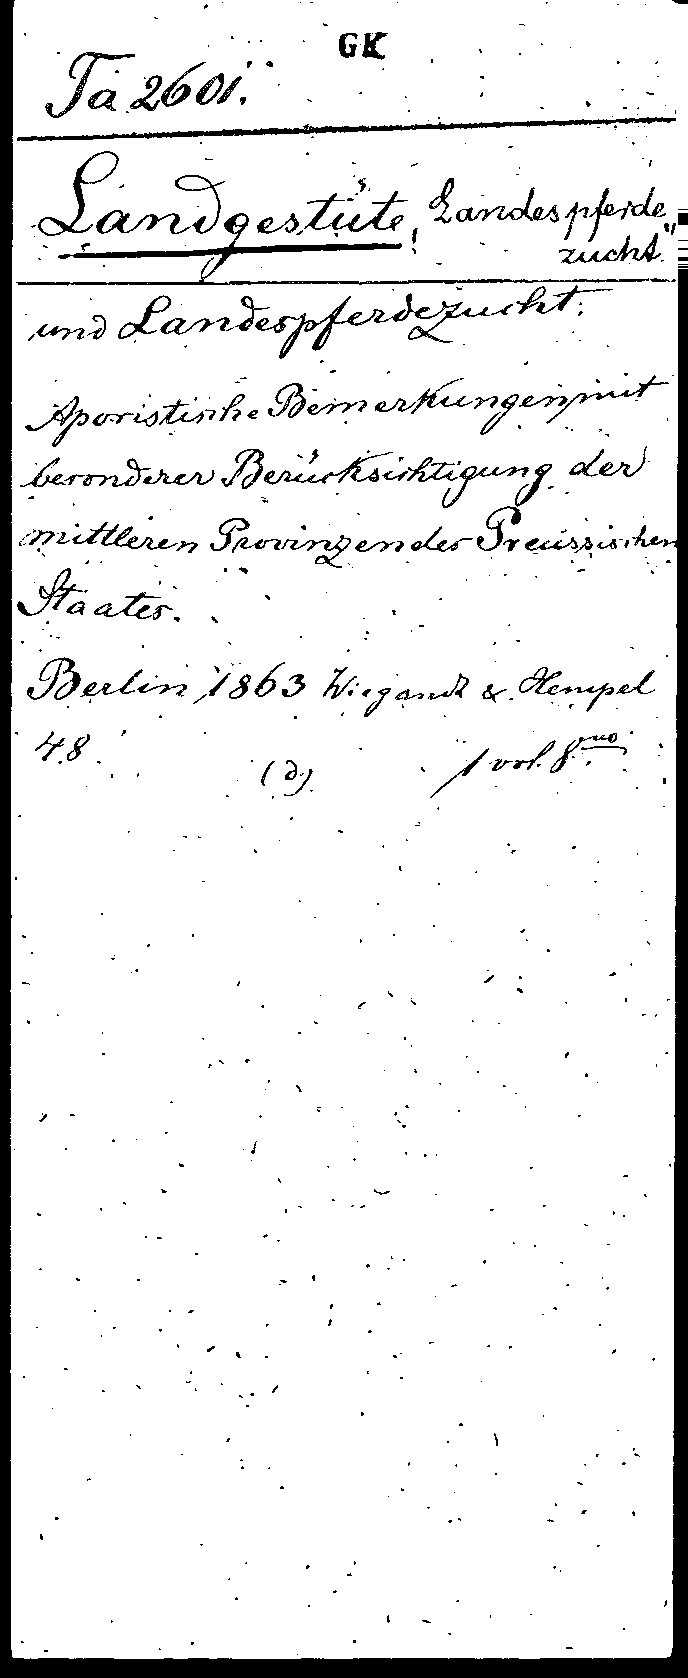 GK
Ta 2601.
Landgestüte, Landespferde
zucht"
und Landespferdezucht.
Aporistische Bemerkungen mit
besonderer Berücksichtigung der
mittleren Provinzen des Preussischen
Staates.
Berlin 1863 Wiegandt & Hempel
48 (d) 1 vol. 8^uo